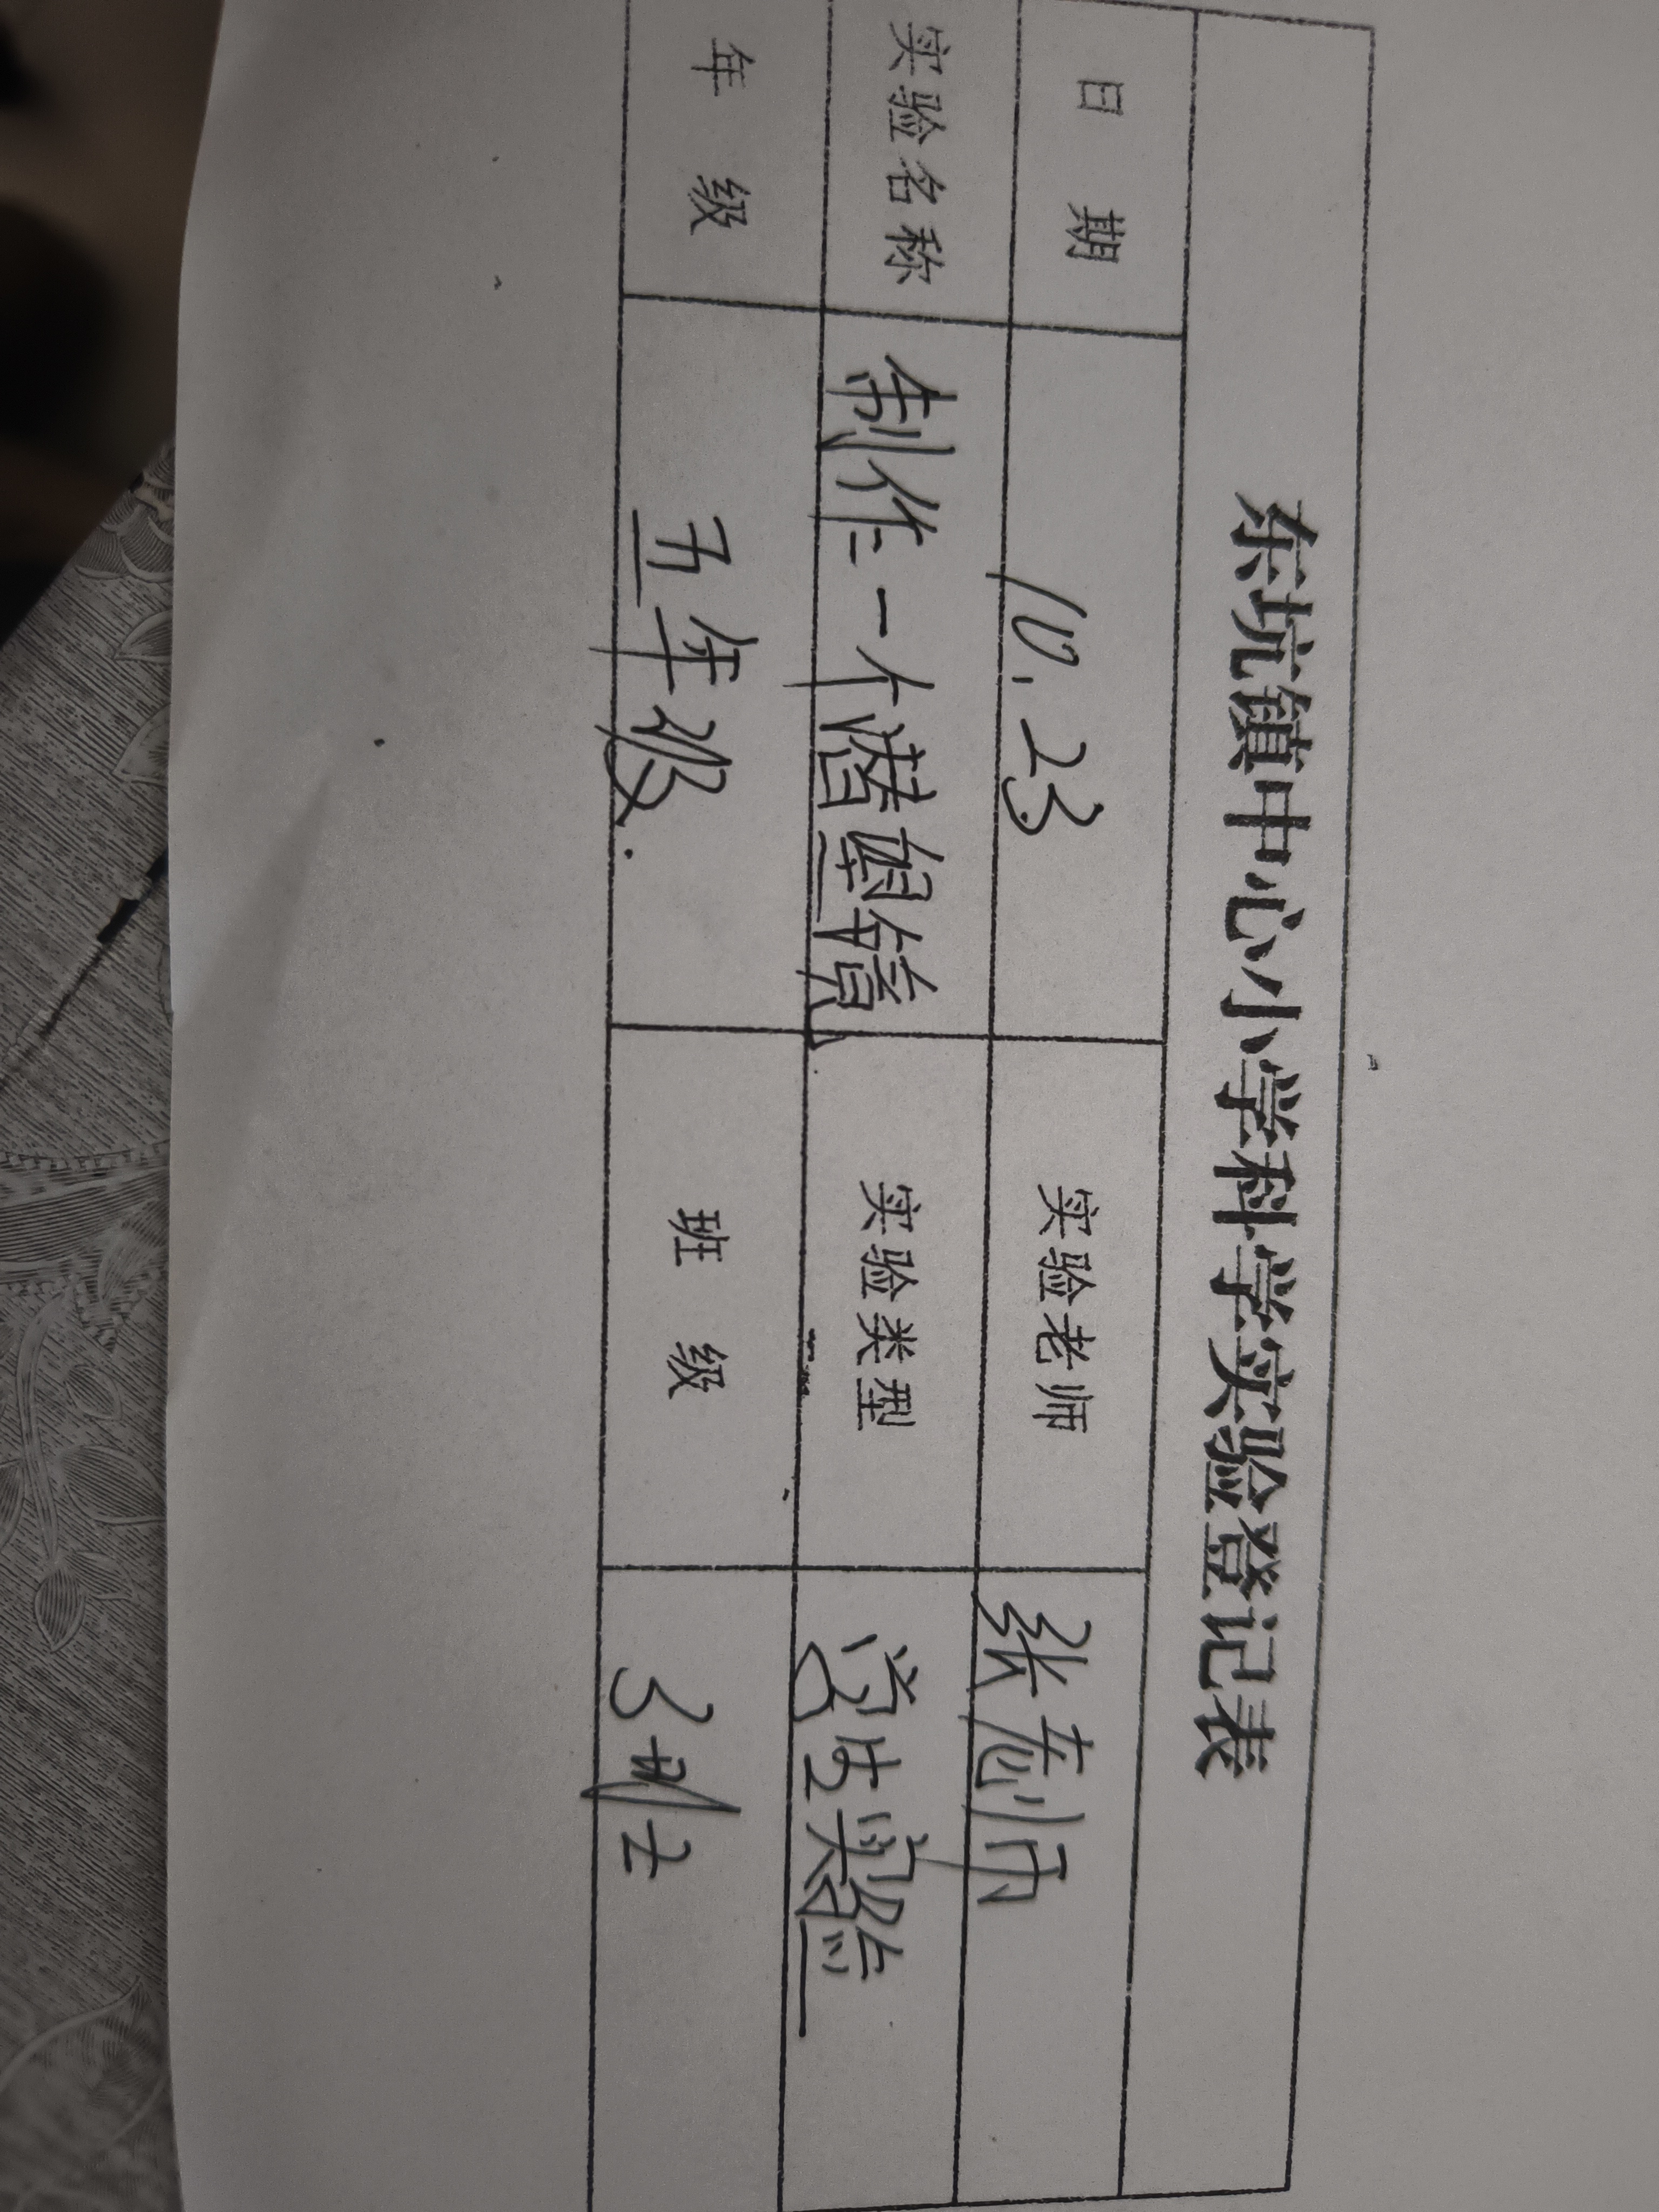 东坑镇中心小学科学实验登记表
日 期 10.23 实验老师 张老师
实验名称 制作一个潜望镜 实验类型 学生实验
年 级 五年级. 班 级 3班